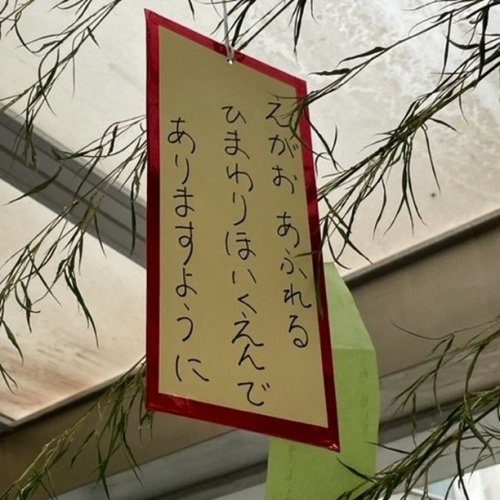 えがお あふれる
ひまわりほいくえんで
ありますように